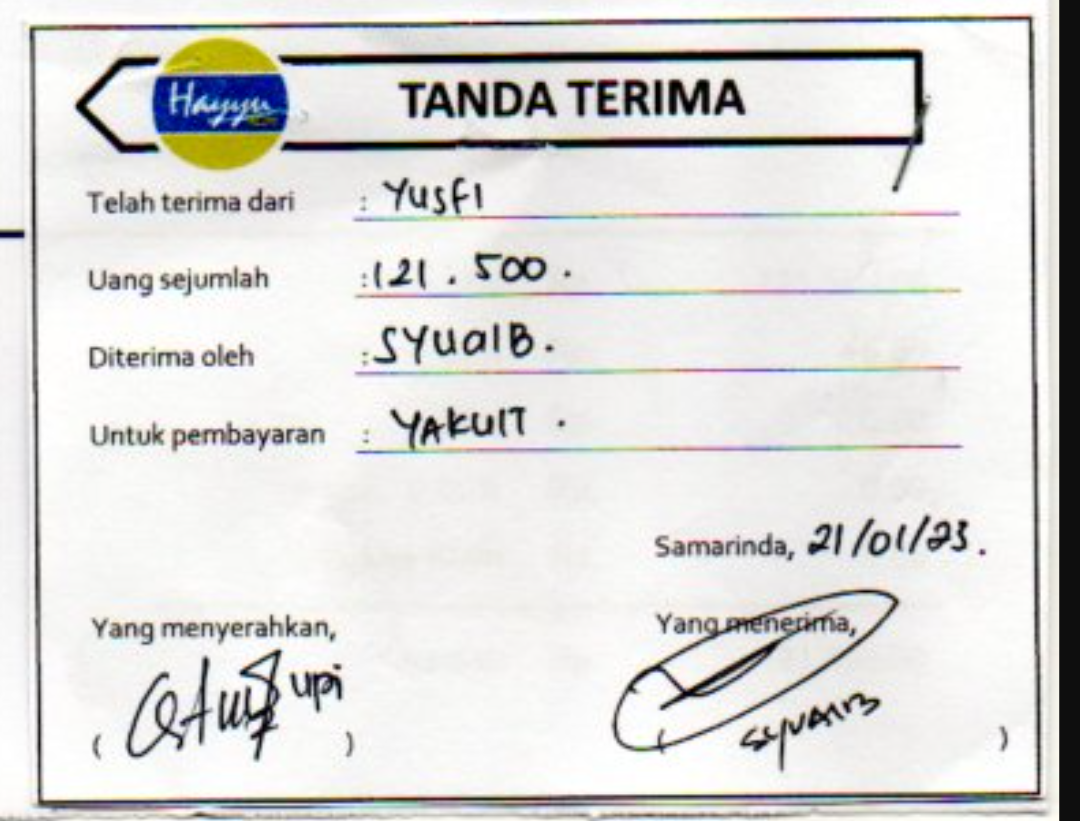 Hayyu
TANDA TERIMA
Telah terima dari : YUSFI
Uang sejumlah : 121.500.
Diterima oleh : SYUAIB.
Untuk pembayaran : YAKULT.
Samarinda, 21/01/23.
Yang menyerahkan, Yang menerima,
upi
( ) ( SYUAIB )